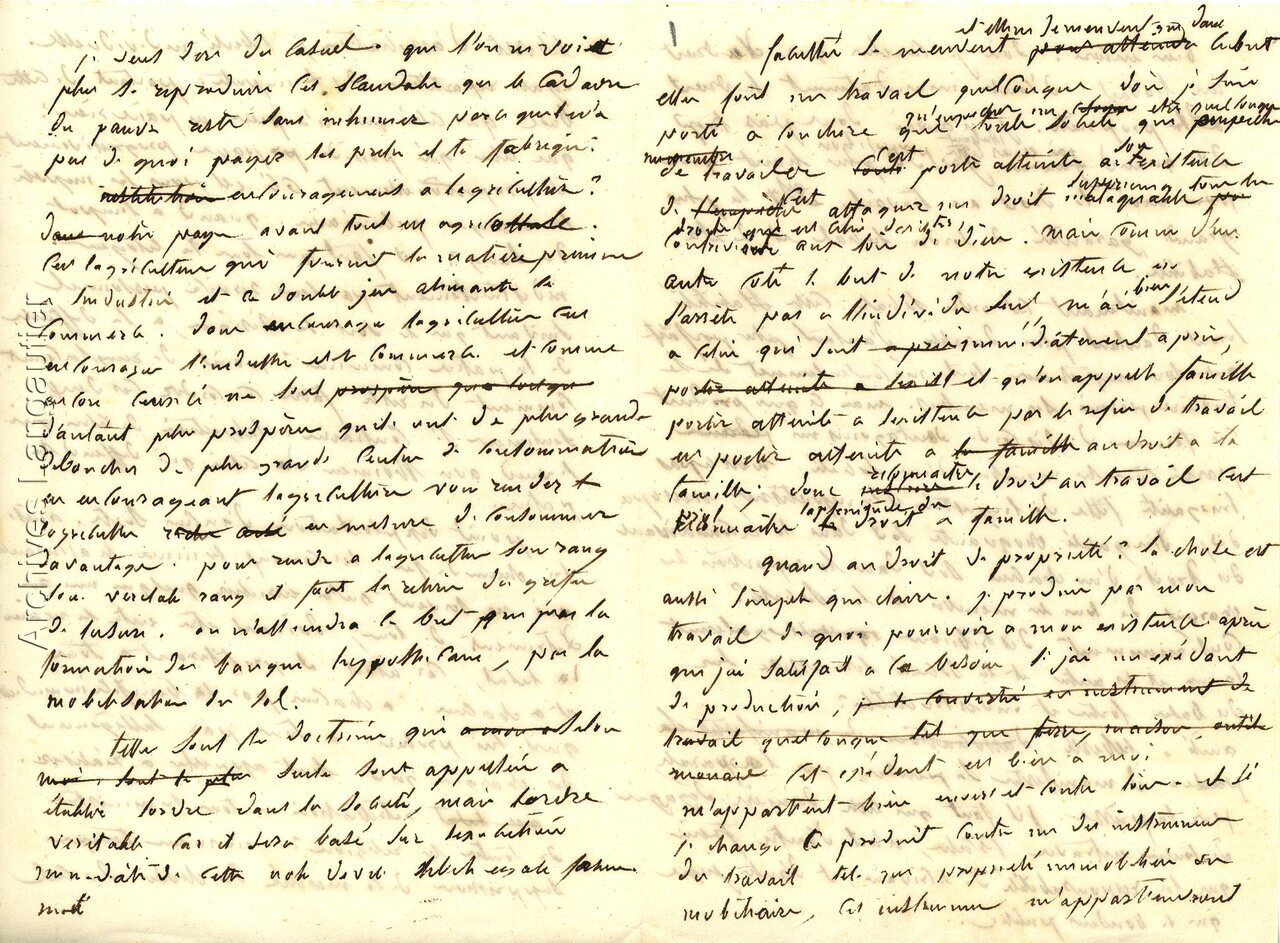 je veux dire du casuel. que l'on ne voie
plus se reproduire ces scandales que le cadavre
du pauvre reste sans inhumer parce qu'il n'a
pas de quoi payer les prêtres et la fabrique.
institution encouragement a lagriculture?
notre pays avant tout est agricole.
c'est lagriculture qui fournit la matière première
a l'industrie et a double jeu alimente le
commerce. donc encourager lagriculture c'est
encourager l'industrie et le commerce. et comme
encore ceux-ci ne sont prospère que lorsque
d'autant plus prospères qu'ils ont de plus grands
débouchés de plus grands centres de consommation
en encourageant lagriculture vous rendez
lagriculture en mesure de consommer
davantage. pour rendre a lagriculture son rang
son véritable rang il faut la retirer des griffes
de lusure. on n'atteindra ce but que par la
formation des banques hypothécaires, par la
mobilisation du sol.
telles sont les doctrines qui a mon selon
moi sont le plus seules sont appelées a
établir lordre dans la société, mais lordre
véritable car il sera basé sur
de cette note
1
et elles ne se meuvent que dans
facultés se meuvent pour atteindre ce but
elles font un travail quelconque donc je suis
porté a conclure que toute société qui empêche
de travailler c'est porter atteinte a son existence
c'est attaquer un droit supérieur a tous les
droits
contrevenir aux lois de dieu. mais comme d'un
autre coté le but de notre existence ne
s'arrête pas a l'individu seul, mais bien s'étend
a celui qui suit immédiatement après,
porter atteinte a et qu'on appelle famille
porter atteinte a lexistence par le refus de travail
est porter atteinte a la famille au droit a la
famille; donc reconnaître le droit au travail c'est
reconnaître le droit a famille.
quand au droit de propriété? la chose est
aussi simple que claire. je produis par mon
travail de quoi pourvoir a mon existence après
que jai satisfait a ce besoin si jai un exédant
de production, je le convertis en instrument de
travail quelconque tel que terre, maison, outils
monaie cet exédent est bien a moi
m'appartient bien envers et contre tous. et si
je change ce produit contre un des instruments
du travail tels que propriété immobilière ou
mobiliaire, ces instruments m'appartiennent
Archives Jangautier